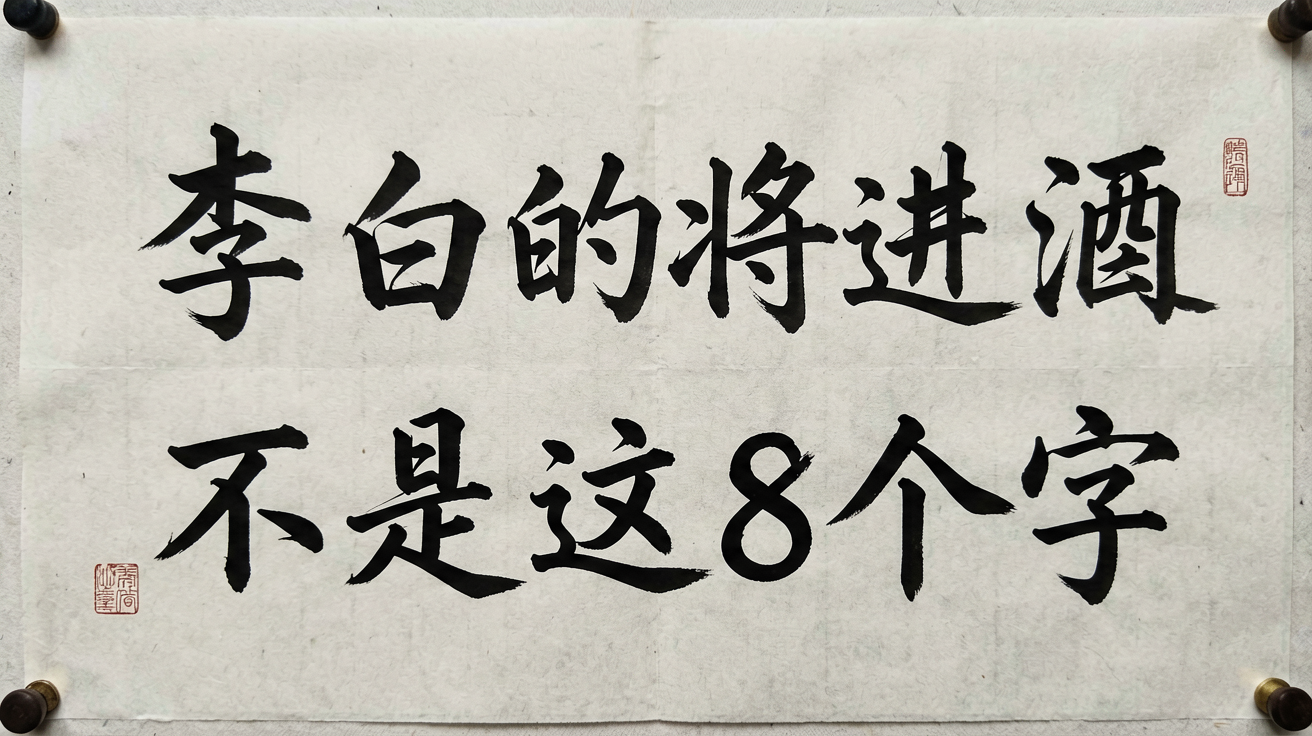 李白的将进酒
不是这8个字